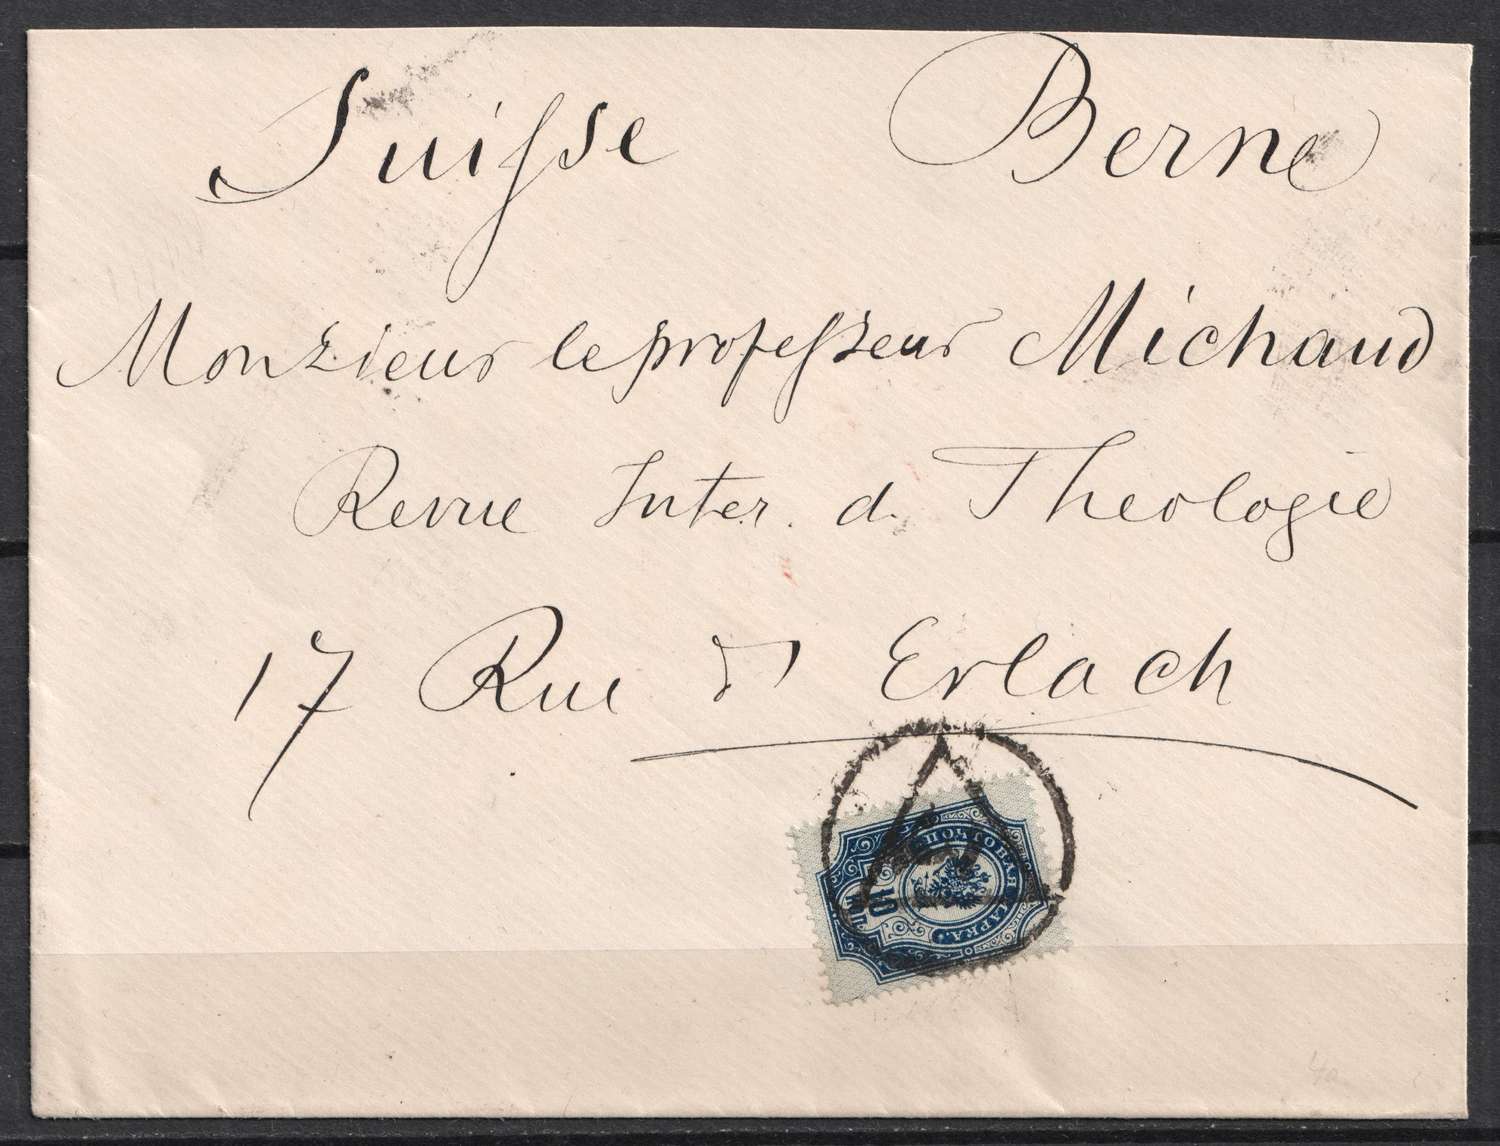 Suisse Berne
Monsieur le professeur Michaud
Revue Inter. d. Theologie
17 Rue d' Erlach
ПОЧТОВАЯ МАРКА
10
КОП.